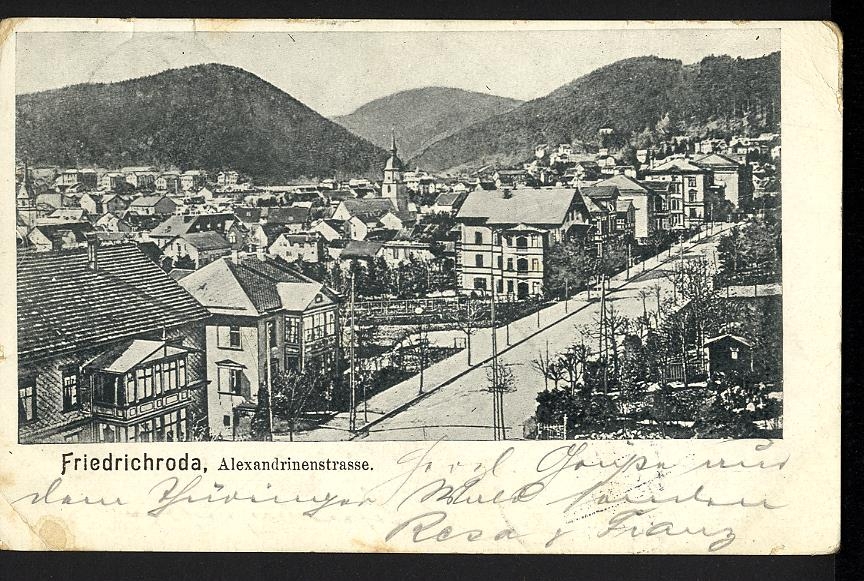 Friedrichroda, Alexandrinenstrasse. Herzl. Grüße aus
dem Thüringer Wald senden
Resa & Franz